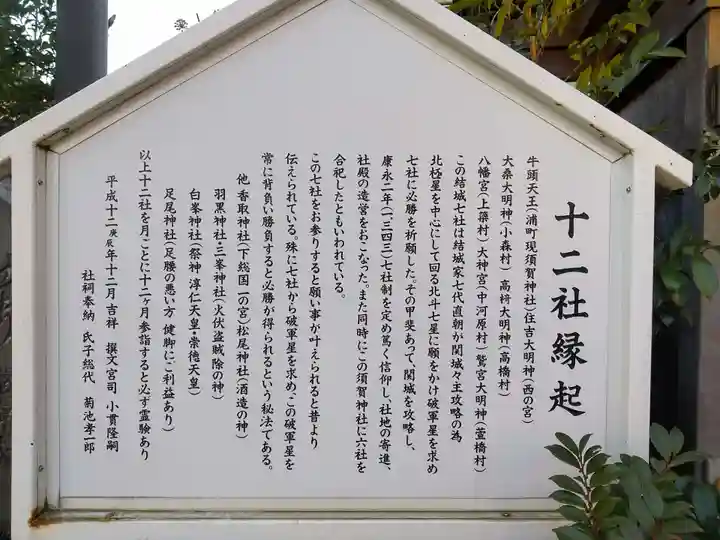 十二社縁起
牛頭天王(浦町現須賀神社)住吉大明神(西の宮)
大桑大明神(小森村)高椅大明神(高橋村)
八幡宮(上簗村)大神宮(中河原村)鷲宮大明神(萱橋村)
この結城七社は結城家七代直朝が関城々主攻略の為
北極星を中心にして回る北斗七星に願をかけ破軍星を求め
七社に必勝を祈願した。その甲斐あって、関城を攻略し、
康永二年(一三四三)七社制を定め篤く信仰し、社地の寄進、
社殿の造営をおこなった。また同時にこの須賀神社に六社を
合祀したともいわれている。
この七社をお参りすると願い事が叶えられると昔より
伝えられている。殊に七社から破軍星を求め、この破軍星を
常に背負い勝負すると必勝が得られるという秘法である。
他 香取神社(下総国一の宮)松尾神社(酒造の神)
羽黒神社・三峯神社(火伏盗賊除の神)
白峯神社(祭神 淳仁天皇・崇徳天皇)
足尾神社(足腰の悪い方 健脚にご利益あり)
以上十二社を月ごとに十二ヶ月参詣すると必ず霊験あり
平成十二庚辰年十二月吉祥 撰文宮司 小貫隆嗣
社祠奉納 氏子総代 菊池孝一郎